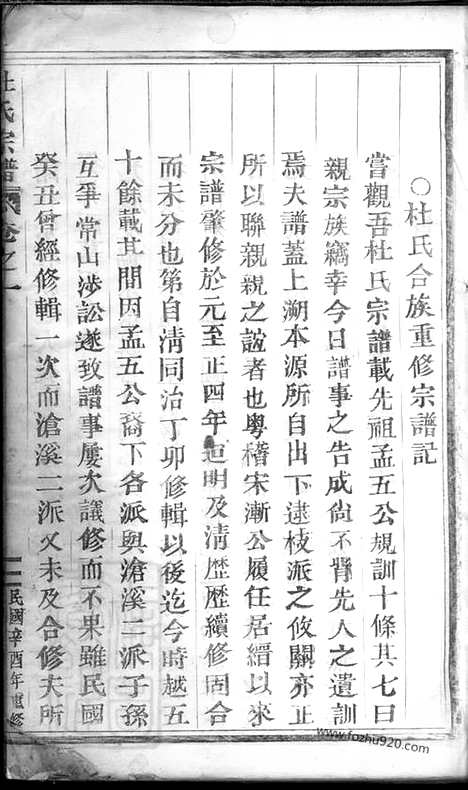 ○杜氏合族重修宗譜記
嘗觀吾杜氏宗譜載先祖孟五公規訓十條其七曰
親宗族竊幸今日譜事之告成尚不背先人之遺訓
焉夫譜蓋上溯本源所自出下逮枝派之攸關亦正
所以聯親親之誼者也粵稽宋漸公履任居縉以來
宗譜肇修於元至正四年迨明及淸歷歷續修固合
而未分也第自淸同治丁卯修輯以後迄今時越五
十餘載其間因孟五公裔下各派與滄溪二派子孫
互爭常山涉訟遂致譜事屢次議修而不果雖民國
癸丑曾經修輯一次而滄溪二派又未及合修夫所
杜氏宗譜 卷之一
民國辛酉年重修
www.fozhu920.com